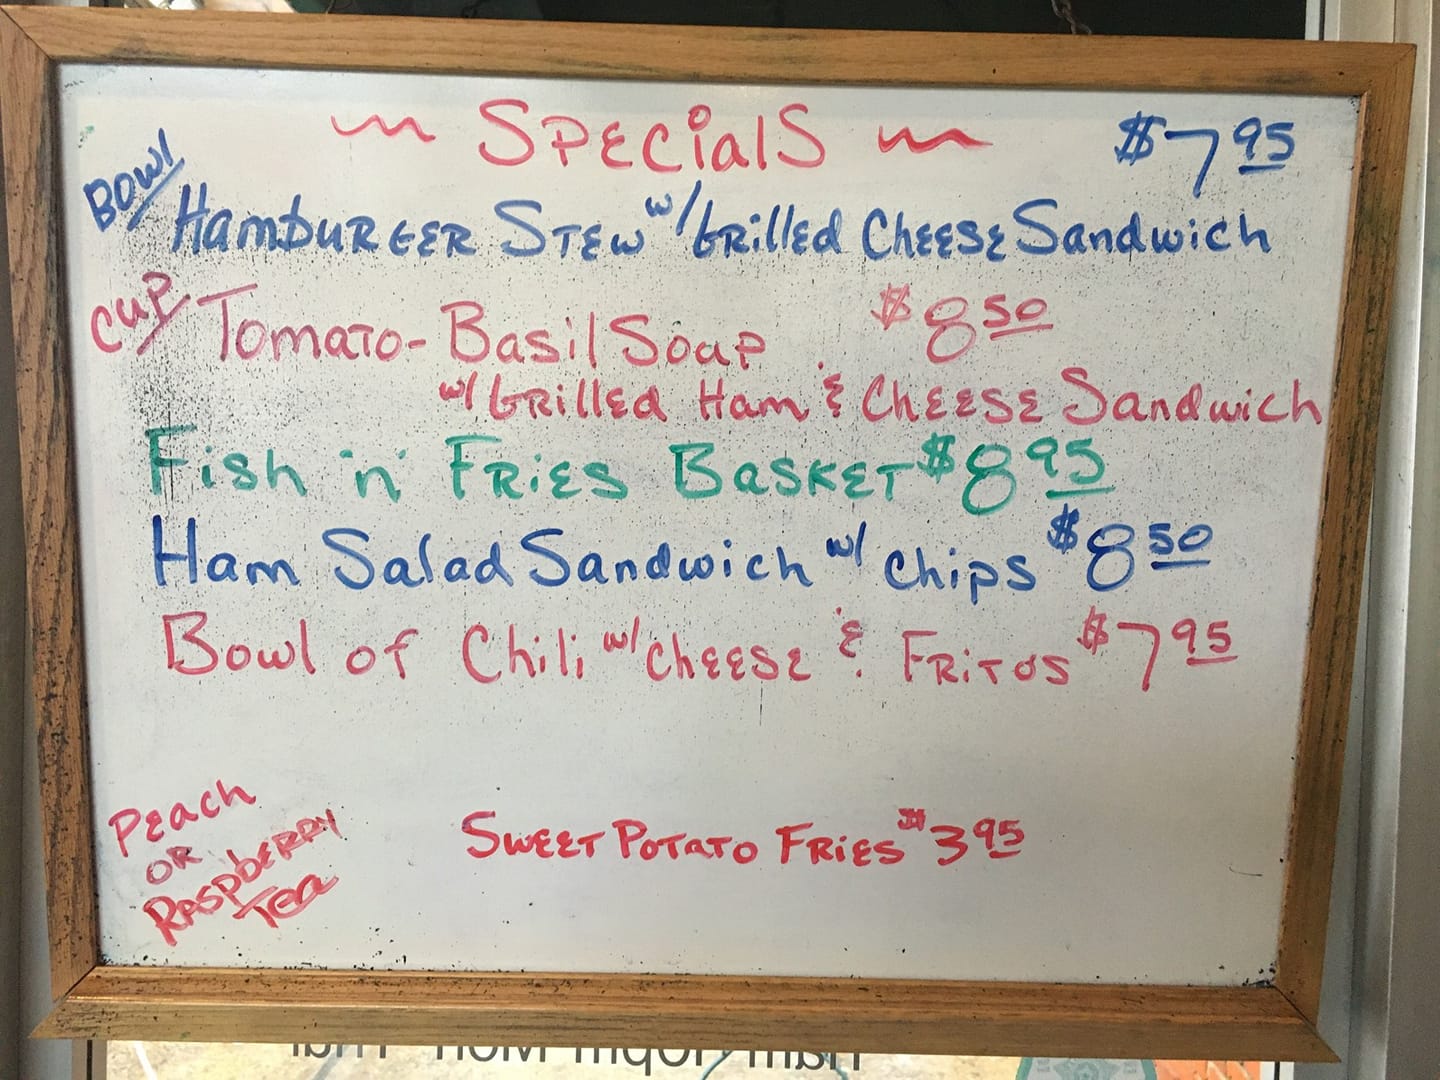 ~ Specials ~ $7.95
Bowl/ Hamburger Stew w/Grilled Cheese Sandwich
Cup/ Tomato-Basil Soap $8.50
w/Grilled Ham & Cheese Sandwich
Fish 'n' Fries Basket $8.95
Ham Salad Sandwich w/ chips $8.50
Bowl of Chili w/cheese & Fritos $7.95
Peach
or
Raspberry
Tea
Sweet Potato Fries $3.95